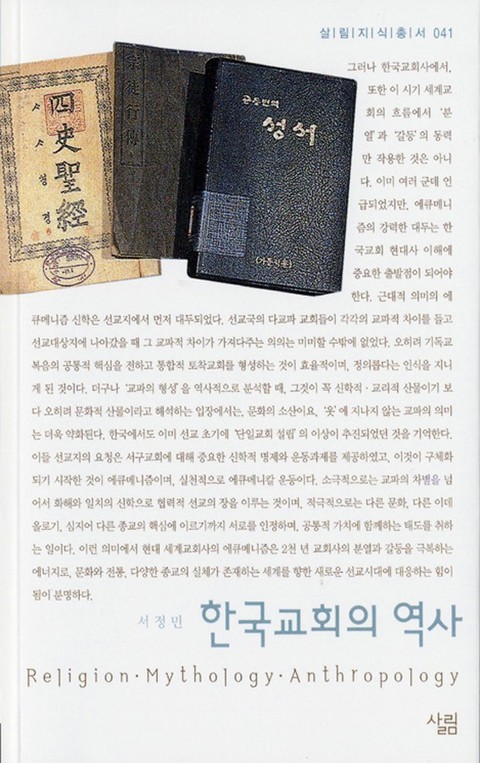 살|림|지|식|총|서 041
그러나 한국교회사에서,
또한 이 시기 세계교
회의 흐름에서 '분
열'과 '갈등'의 동력
만 작용한 것은 아니
다. 이미 여러 군데 언
급되었지만, 에큐메니
즘의 강력한 대두는 한
국교회 현대사 이해에
중요한 출발점이 되어야
한다. 근대적 의미의 에
큐메니즘 신학은 선교지에서 먼저 대두되었다. 선교국의 다교파 교회들이 각각의 교파적 차이를 들고
선교대상지에 나아갔을 때 그 교파적 차이가 가져다주는 의의는 미미할 수밖에 없었다. 오히려 기독교
복음의 공통적 핵심을 전하고 통합적 토착교회를 형성하는 것이 효율적이며, 정의롭다는 인식을 지니
게 된 것이다. 더구나 '교파의 형성'을 역사적으로 분석할 때, 그것이 꼭 신학적·교리적 산물이기 보
다 오히려 문화적 산물이라고 해석하는 입장에서는, 문화의 소산이요, '옷'에 지나지 않는 교파의 의미
는 더욱 약화된다. 한국에서도 이미 선교 초기에 '단일교회 설립'의 이상이 추진되었던 것을 기억한다.
이들 선교지의 요청은 서구교회에 대해 중요한 신학적 명제와 운동과제를 제공하였고, 이것이 구체화
되기 시작한 것이 에큐메니즘이며, 실천적으로 에큐메니칼 운동이다. 소극적으로는 교파의 차별을 넘
어서 화해와 일치의 신학으로 협력적 선교의 장을 이루는 것이며, 적극적으로는 다른 문화, 다른 이데
올로기, 심지어 다른 종교의 핵심에 이르기까지 서로를 인정하며, 공통적 가치에 함께하는 태도를 취하
는 일이다. 이런 의미에서 현대 세계교회사의 에큐메니즘은 2천 년 교회사의 분열과 갈등을 극복하는
에너지로, 문화와 전통, 다양한 종교의 실체가 존재하는 세계를 향한 새로운 선교시대에 대응하는 힘이
됨이 분명하다.
四史聖經
사 사 성 경
宗徒行傳
공동번역
성서
(가톨릭용)
서정민 한국교회의 역사
Religion·Mythology·Anthropology
살림